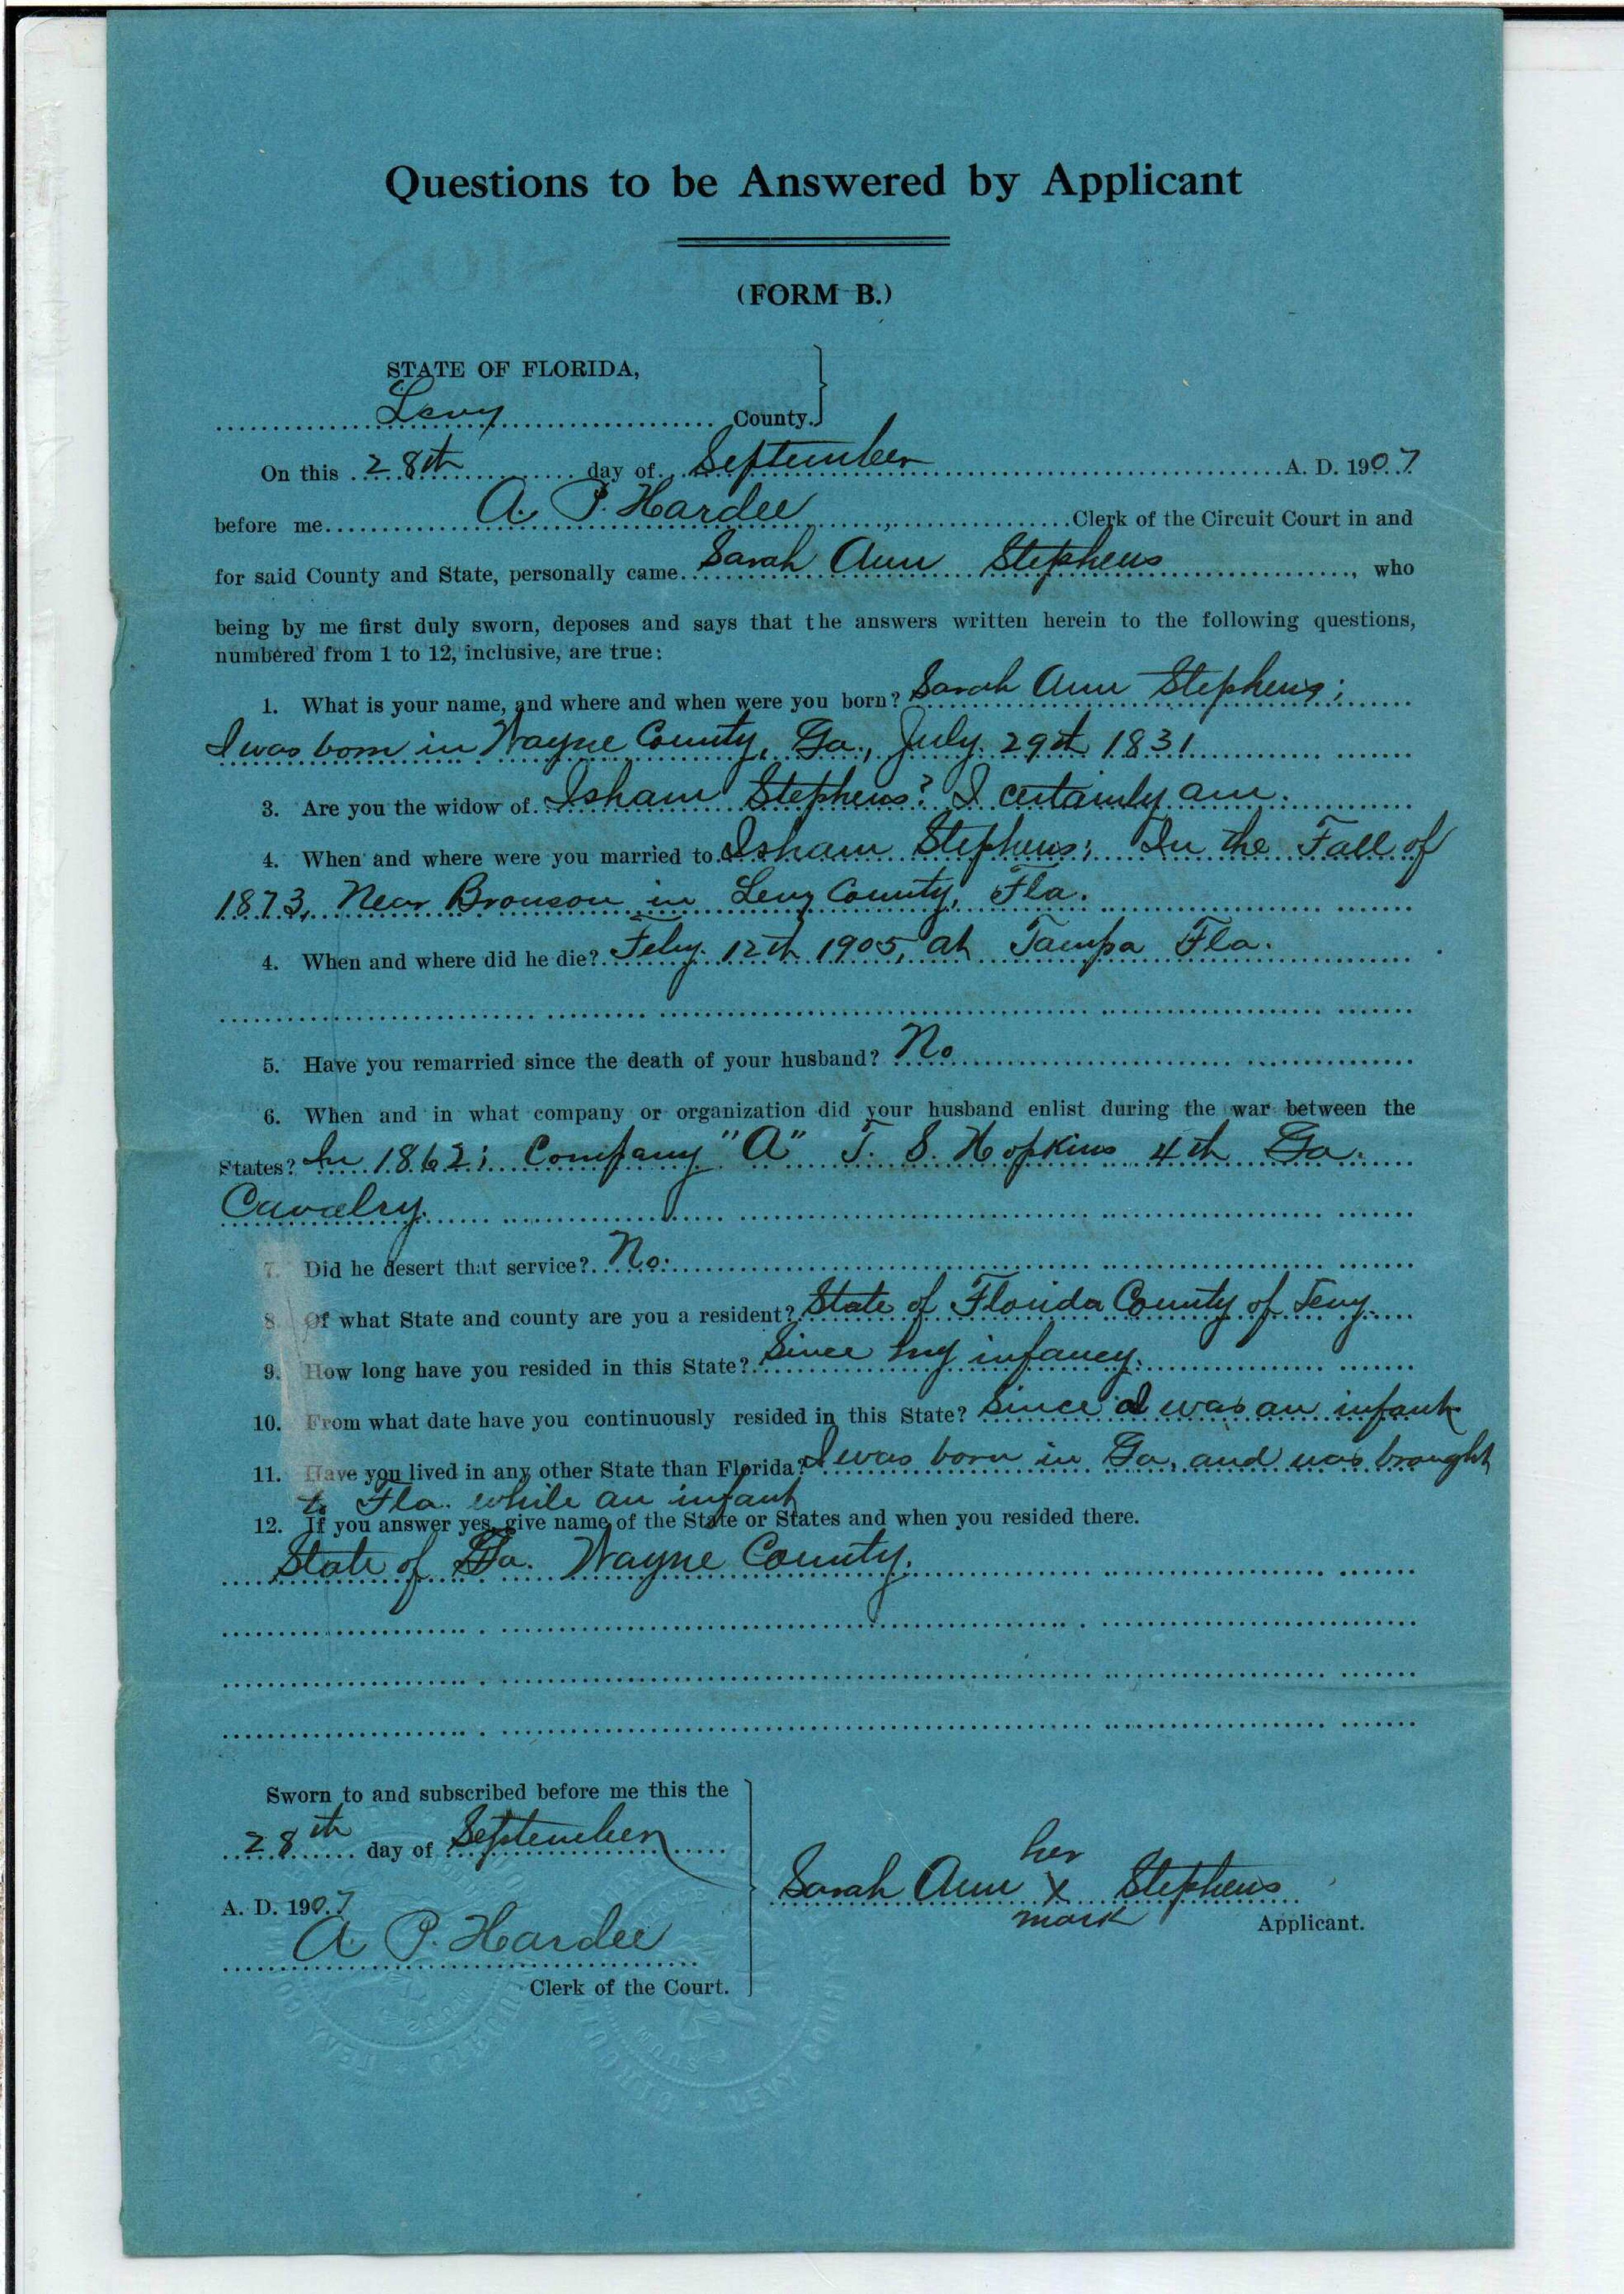 Questions to be Answered by Applicant
(FORM B.)
STATE OF FLORIDA,
Levy County.
On this 28th day of September A. D. 1907
before me A. P. Hardee Clerk of the Circuit Court in and
for said County and State, personally came Sarah Ann Stephens, who
being by me first duly sworn, deposes and says that the answers written herein to the following questions,
numbered from 1 to 12, inclusive, are true:
1. What is your name, and where and when were you born? Sarah Ann Stephens;
I was born in Wayne County, Ga., July 29th 1831
3. Are you the widow of Isham Stephens? I certainly am.
4. When and where were you married to Isham Stephens; In the Fall of
1873, Near Bronson in Levy County, Fla.
4. When and where did he die? Feby. 12th 1905, at Tampa Fla.
5. Have you remarried since the death of your husband? No
6. When and in what company or organization did your husband enlist during the war between the
States? In 1862; Company "A" T. S. Hopkins 4th Ga.
Cavalry.
7. Did he desert that service? No.
8. Of what State and county are you a resident? State of Florida County of Levy.
9. How long have you resided in this State? Since my infancy.
10. From what date have you continuously resided in this State? Since I was an infant
11. Have you lived in any other State than Florida? I was born in Ga, and was brought
to Fla. while an infant
12. If you answer yes, give name of the State or States and when you resided there.
State of Ga. Wayne County.
Sworn to and subscribed before me this the
28th day of September
A. D. 1907
A. P. Hardee
Clerk of the Court.
her
Sarah Ann x Stephens
mark
Applicant.